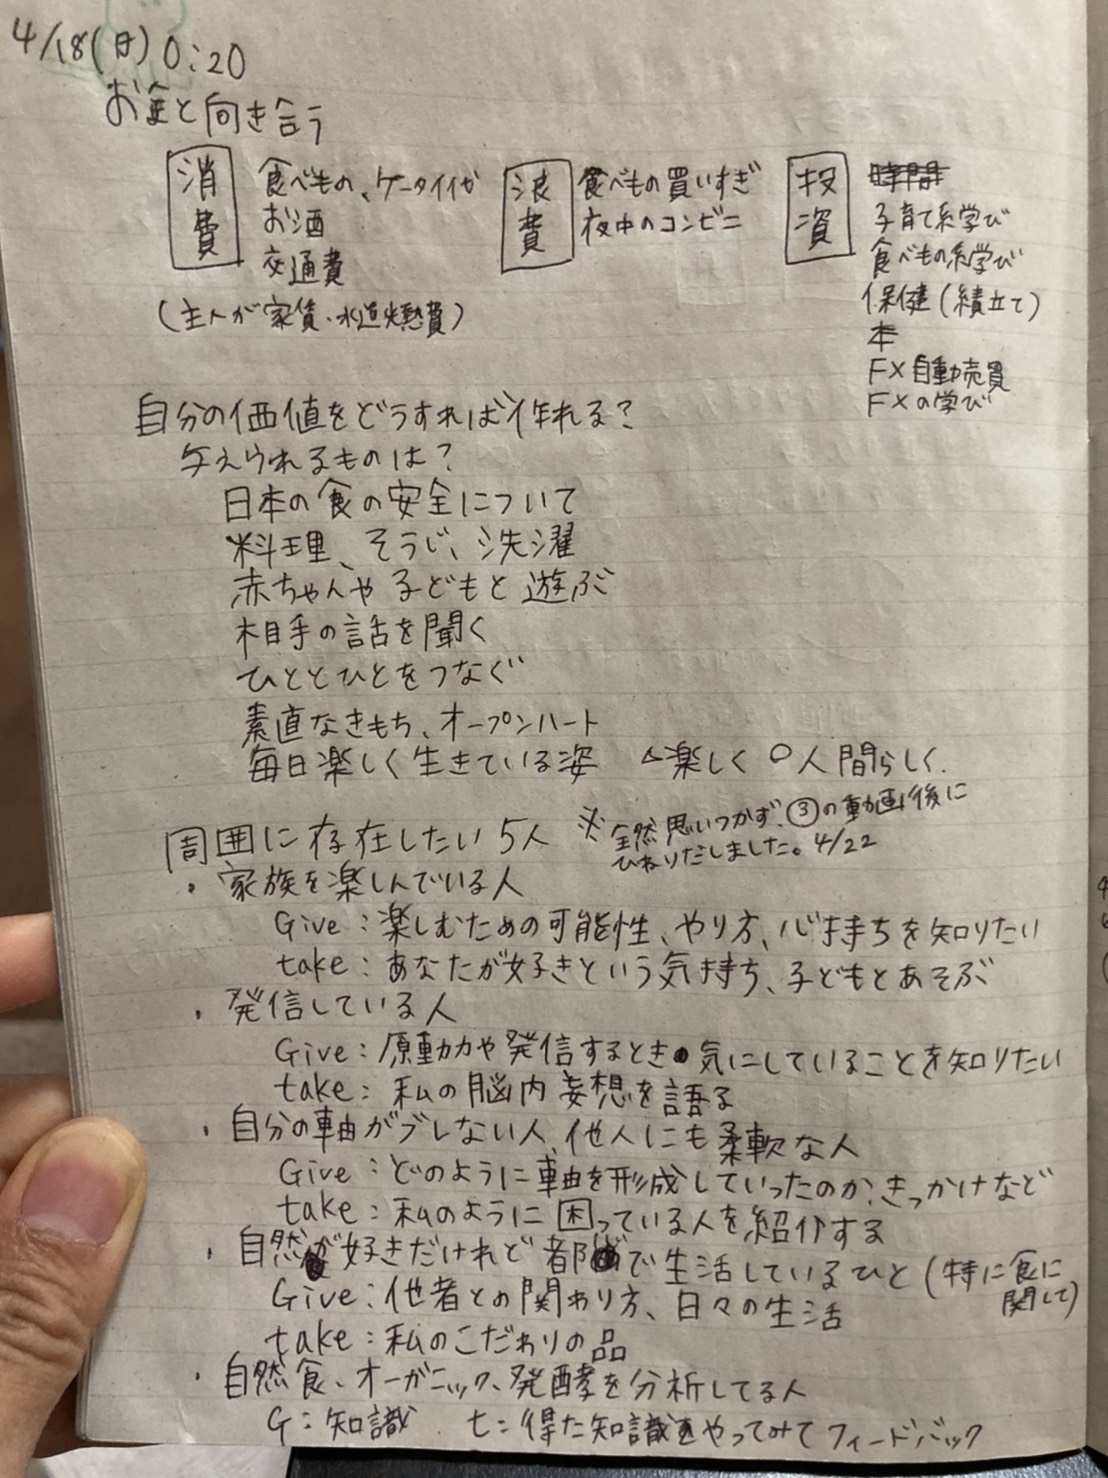 4/18(日) 0:20
お金と向き合う
消費
食べもの、ケータイ代
お酒
交通費
(主人が家賃・水道光熱費)
浪費
食べもの買いすぎ
夜中のコンビニ
投資
時間
子育て系学び
食べもの系学び
保健(積立て)
本
FX自動売買
FXの学び
自分の価値をどうすれば作れる?
与えられるものは?
日本の食の安全について
料理、そうじ、洗濯
赤ちゃんや子どもと遊ぶ
相手の話を聞く
ひととひとをつなぐ
素直なきもち、オープンハート
毎日楽しく生きている姿 △楽しく ○人間らしく.
周囲に存在したい5人
※全然思いつかず、③の動画後に
ひねりだしました。4/22
・家族を楽しんでいる人
Give:楽しむための可能性、やり方、心持ちを知りたい
take:あなたが好きという気持ち、子どもとあそぶ
・発信している人
Give:原動力や発信するとき気にしていることを知りたい
take:私の脳内妄想を語る
・自分の軸がブレない人、他人にも柔軟な人
Give:どのように軸を形成していったのか、きっかけなど
take:私のように困っている人を紹介する
・自然が好きだけれど都会で生活しているひと(特に食に
関して)
Give:他者との関わり方、日々の生活
take:私のこだわりの品
・自然食、オーガニック、発酵を分析してる人
G:知識 t:得た知識をやってみてフィードバック